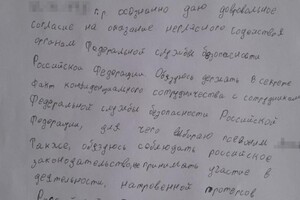 г.р. осознанно даю добровольное
согласие на оказание негласного содействия
органам Федеральной службы безопасности
Российской Федерации Обязуюсь держать в секрете
факт конфиденциального сотрудничества с сотрудником
Федеральной службы безопасности Российской
Федерации, для чего выбираю псевдоним
Также, обязуюсь соблюдать российское
законодательство, не принимать участие в
деятельность,